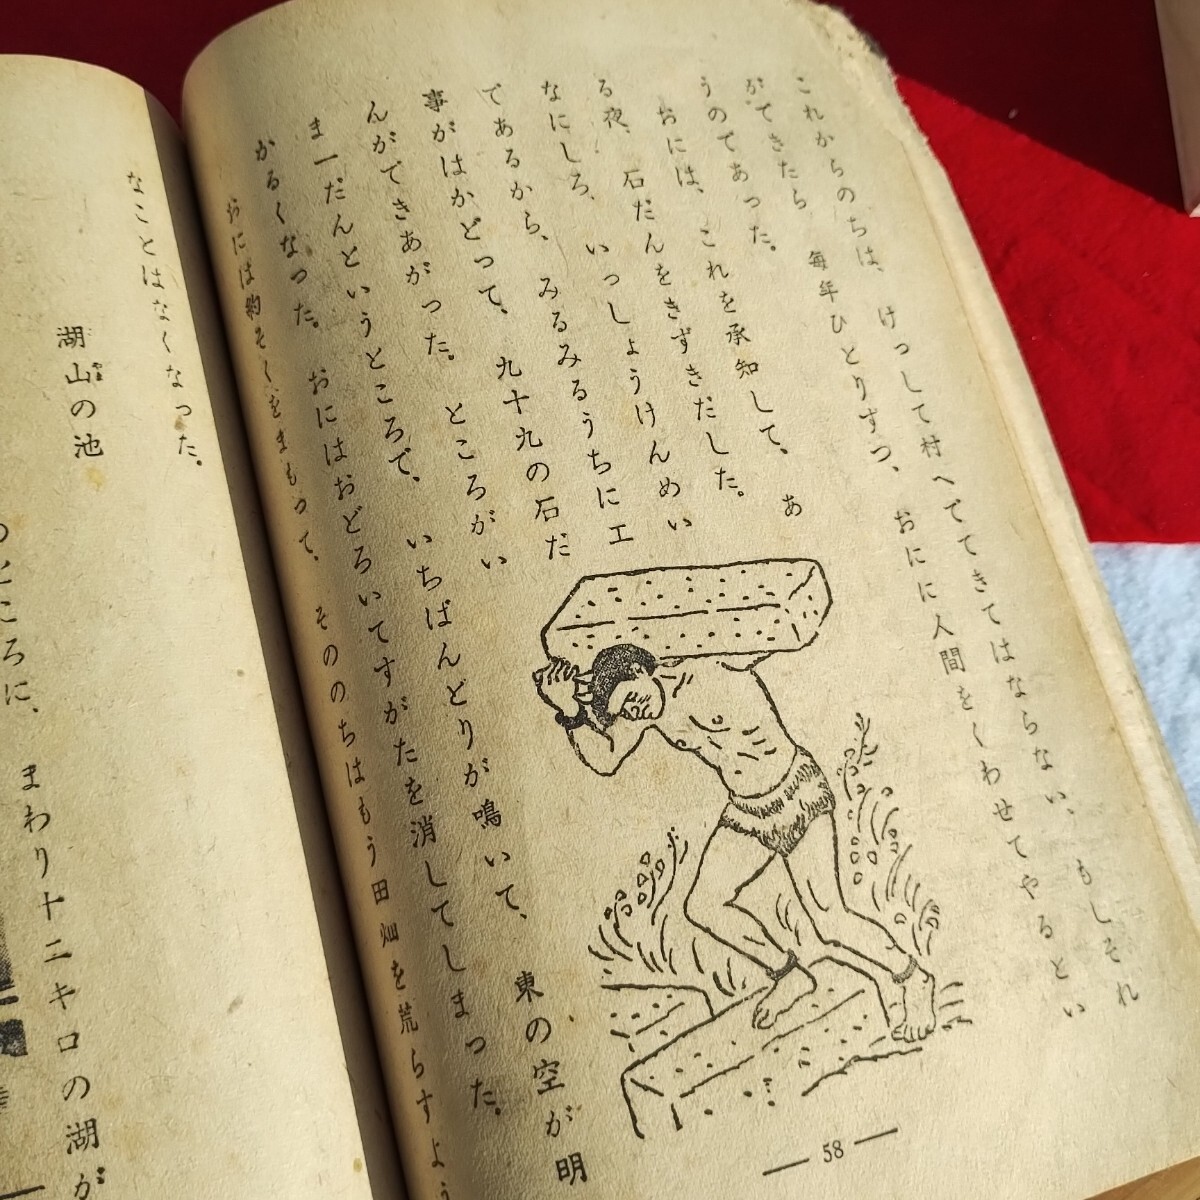 これからのちは、けっして村へでてきてはならない、もしそれ
ができたら　毎年ひとりずつ、おにに人間をくわせてやるとい
うのであった。
おには、これを承知して、あ
る夜、石だんをきずきだした。
なにしろ、いっしょうけんめい
であるから、みるみるうちに工
事がはかどって、九十九の石だ
んができあがった。ところがい
ま一だんというところで、いちばんどりが鳴いて、東の空が明
かるくなった。おにはおどろいてすがたを消してしまった。
おには約そくをまもって、そののちはもう田畑を荒らすよう
58
なことはなくなった。
湖山の池
やま
のところに、まわり十二キロの湖が